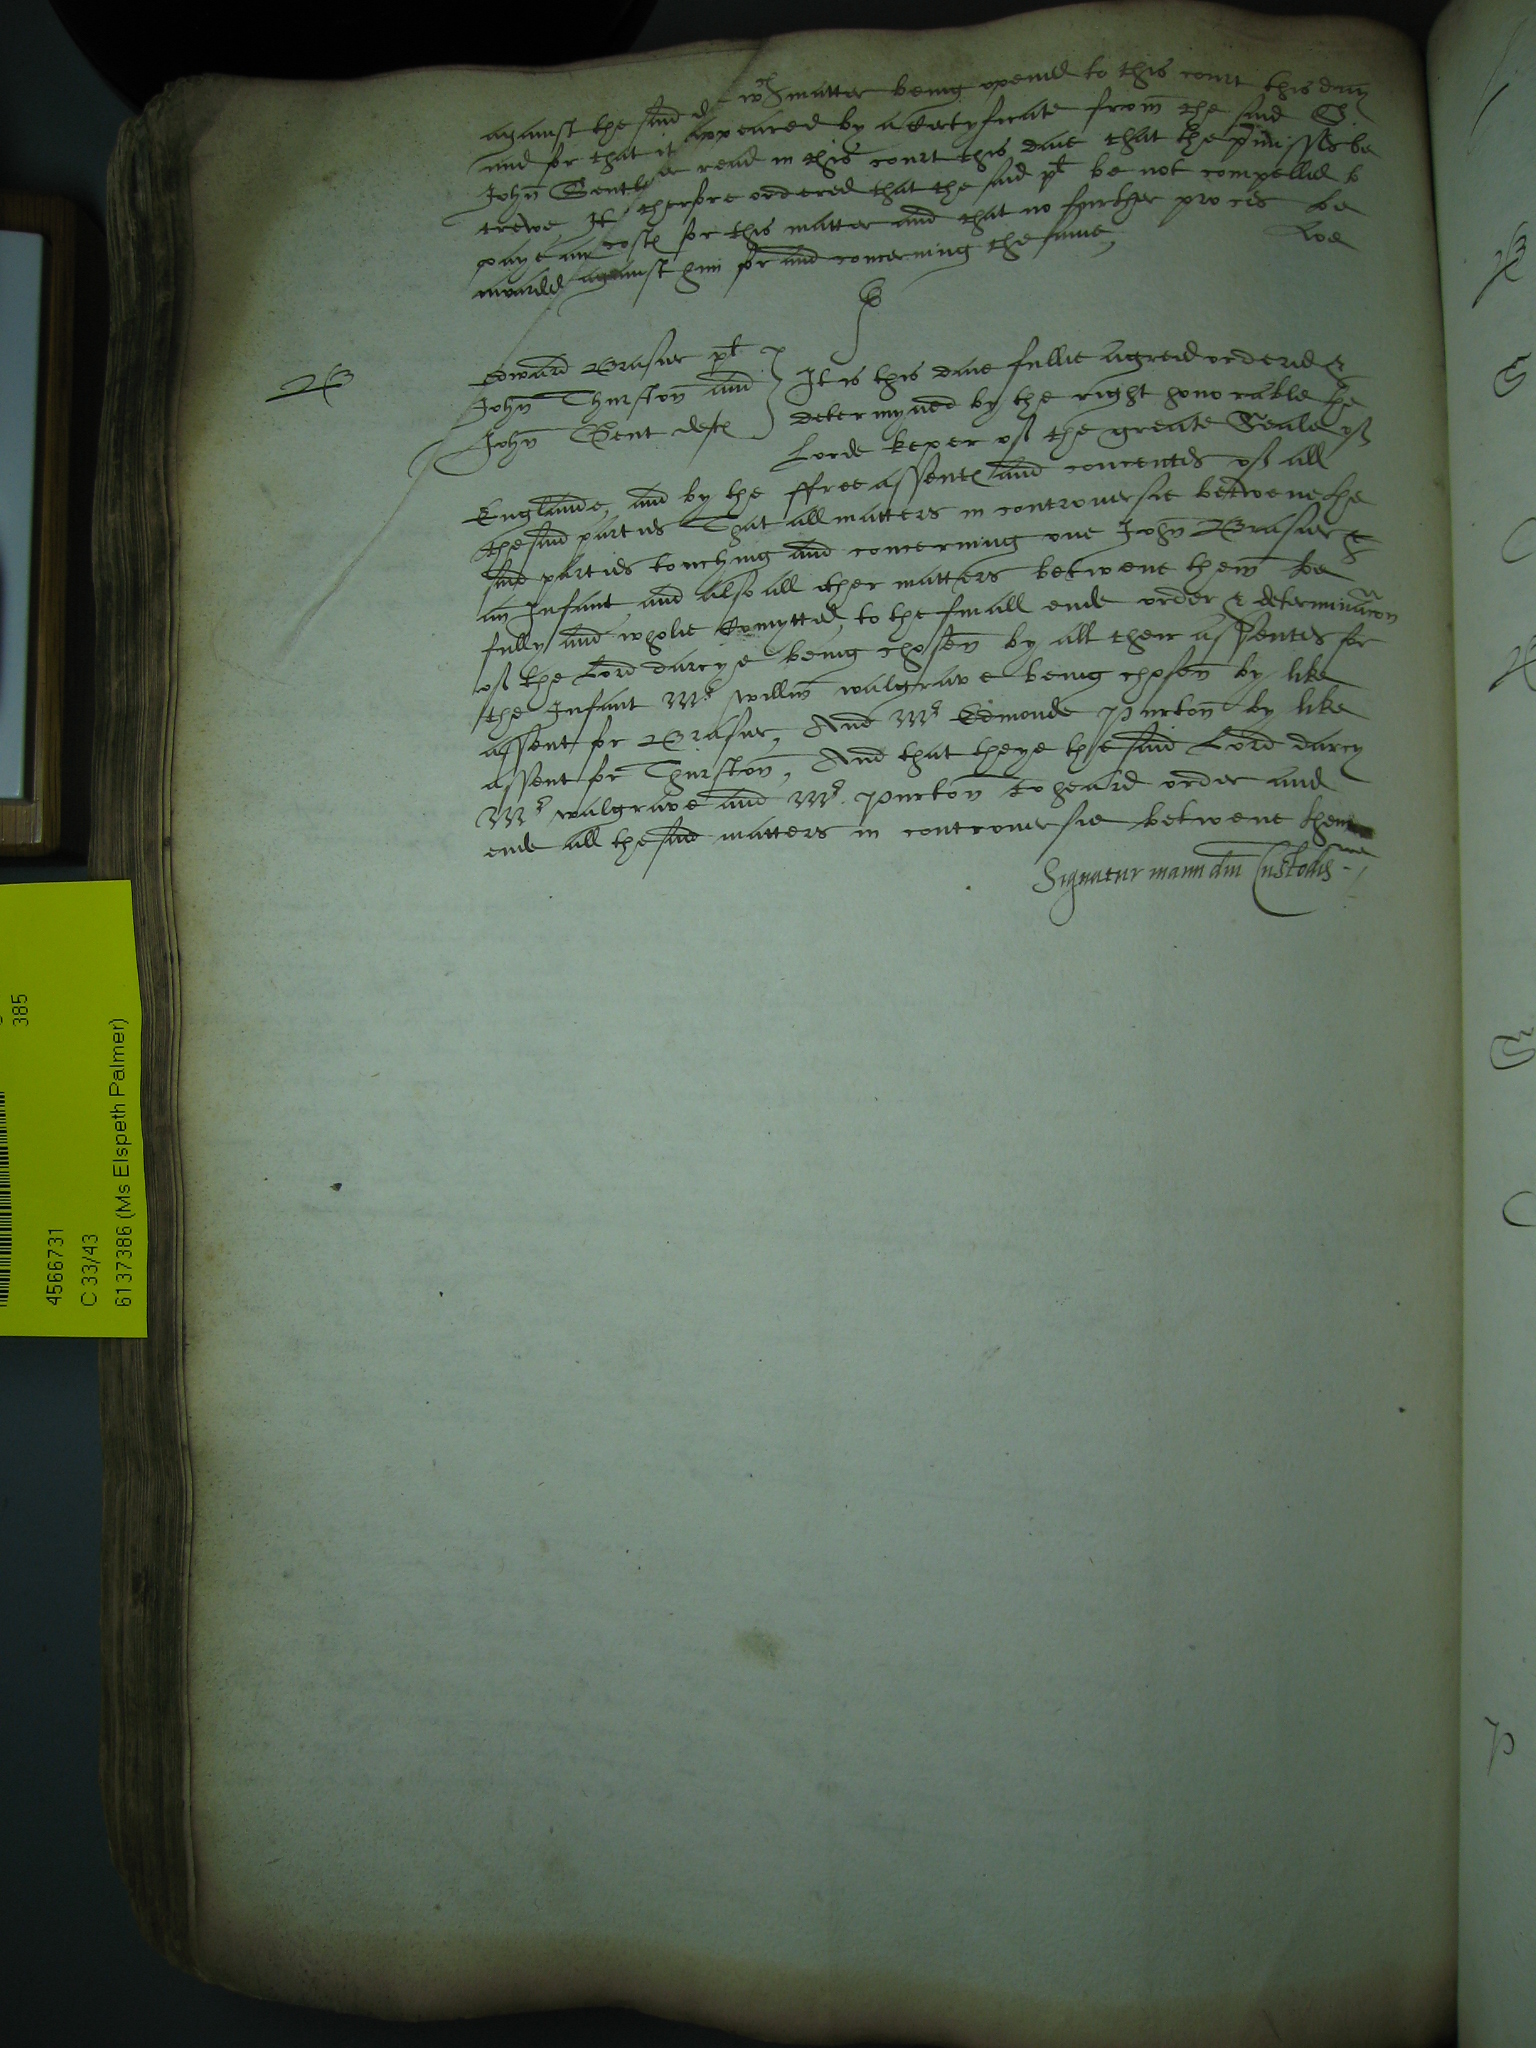 against the said d wch matter being opened to this court this daie
and for that it appeared by a Certyficate from the said S
John Genth read in this court this daie that the pmisses be
trewe It therfore ordered that the said plt be not compelled to
paye any costs for this matter and that no further proces be
awarded against him for and concerning the same,
B
Edward Brasier plt
John Thurston and
John Gent defts
It is this daie fullie agreed ordered &
determyned by the right honorable the
Lorde keper off the greate Seale off
Englande, and by the ffree assents and concentes off all
the said parties That all matters in controuersie betwene the
said parties touching and concerning one John Brasier
an Infant and also all other matters betwene them be
fully and wholie Comytted, to the finall ende order & determinacon
off the Lord darcye being chosen by all their assentes for
the Infant Mr willm walgrave being chosen by like
assent for Brasier, And Mr Edmonde purton by like
assent for Thurston, And that theye the said Lord darcy
Mr walgrave and Mr. purton to heard order and
ende all the said matters in controuersie betwene them
Signatur manu dni Custodis
385
4566731
C 33/43
6137386 (Ms Elspeth Palmer)